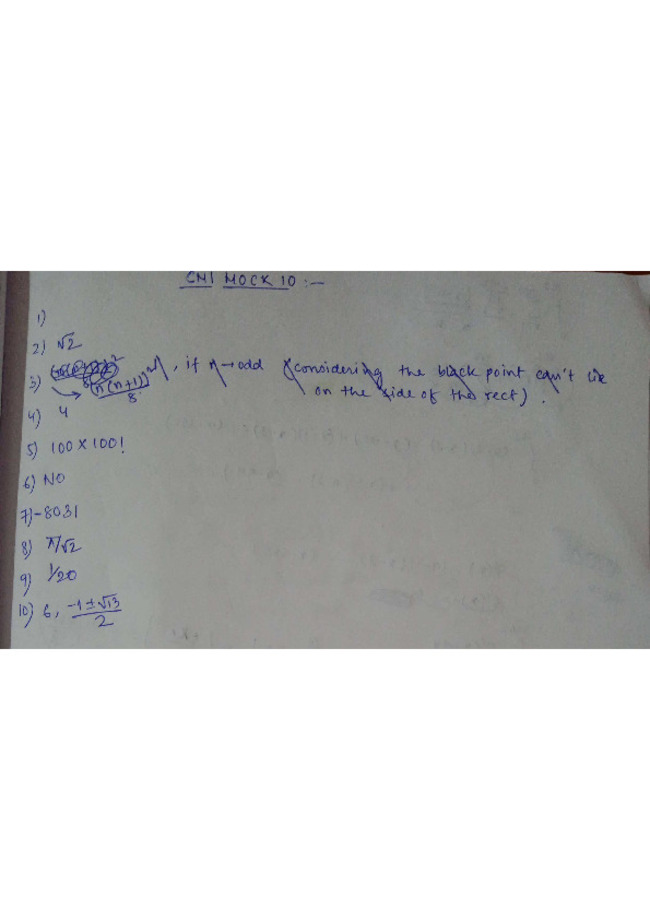 CMI MOCK 10 :-
1)
2) √2
3) [n(n+1)]² / 8, if n → odd (considering the black point can't lie
on the side of the rect).
4) 4
5) 100 × 100!
6) NO
7) -8031
8) π/√2
9) 1/20
10) 6, (-1 ± √13) / 2